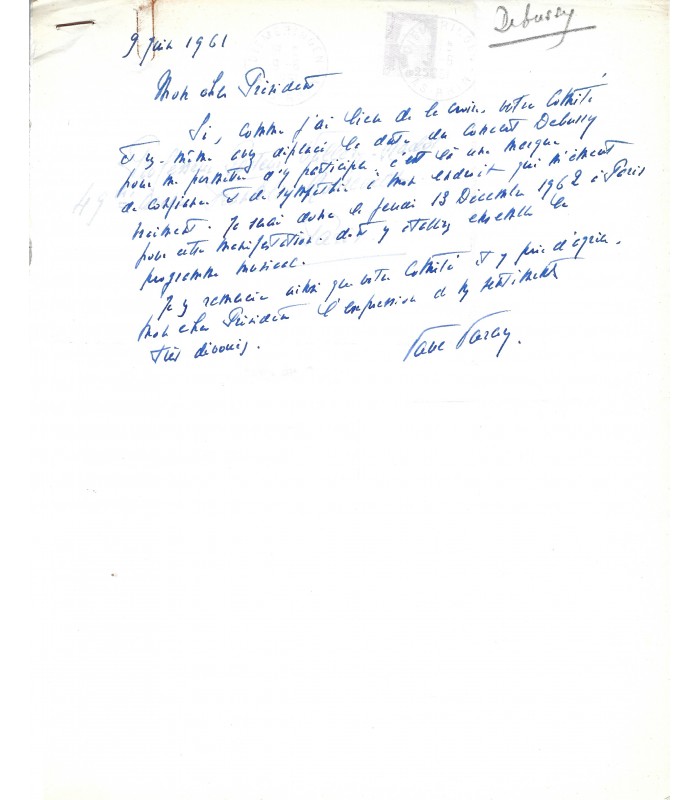 Debussy
9 Juin 1961
Mon cher Président
Si, comme j'ai lieu de le croire, votre Comité
et vs. même avez déplacé la date du Concert Debussy
pour me permettre d'y participer, c'est là une marque
de confiance et de sympathie à mon endroit qui m'émeut
vraiment. Je serai donc le Jeudi 13 Décembre 1962 à Paris
pour cette manifestation. dont ns établirons ensemble le
programme musical.
Je vs remercie ainsi que votre Comité et vs prie d'agréer,
mon cher Président l'expression de mes sentiments
très dévoués.
Paul Paray.